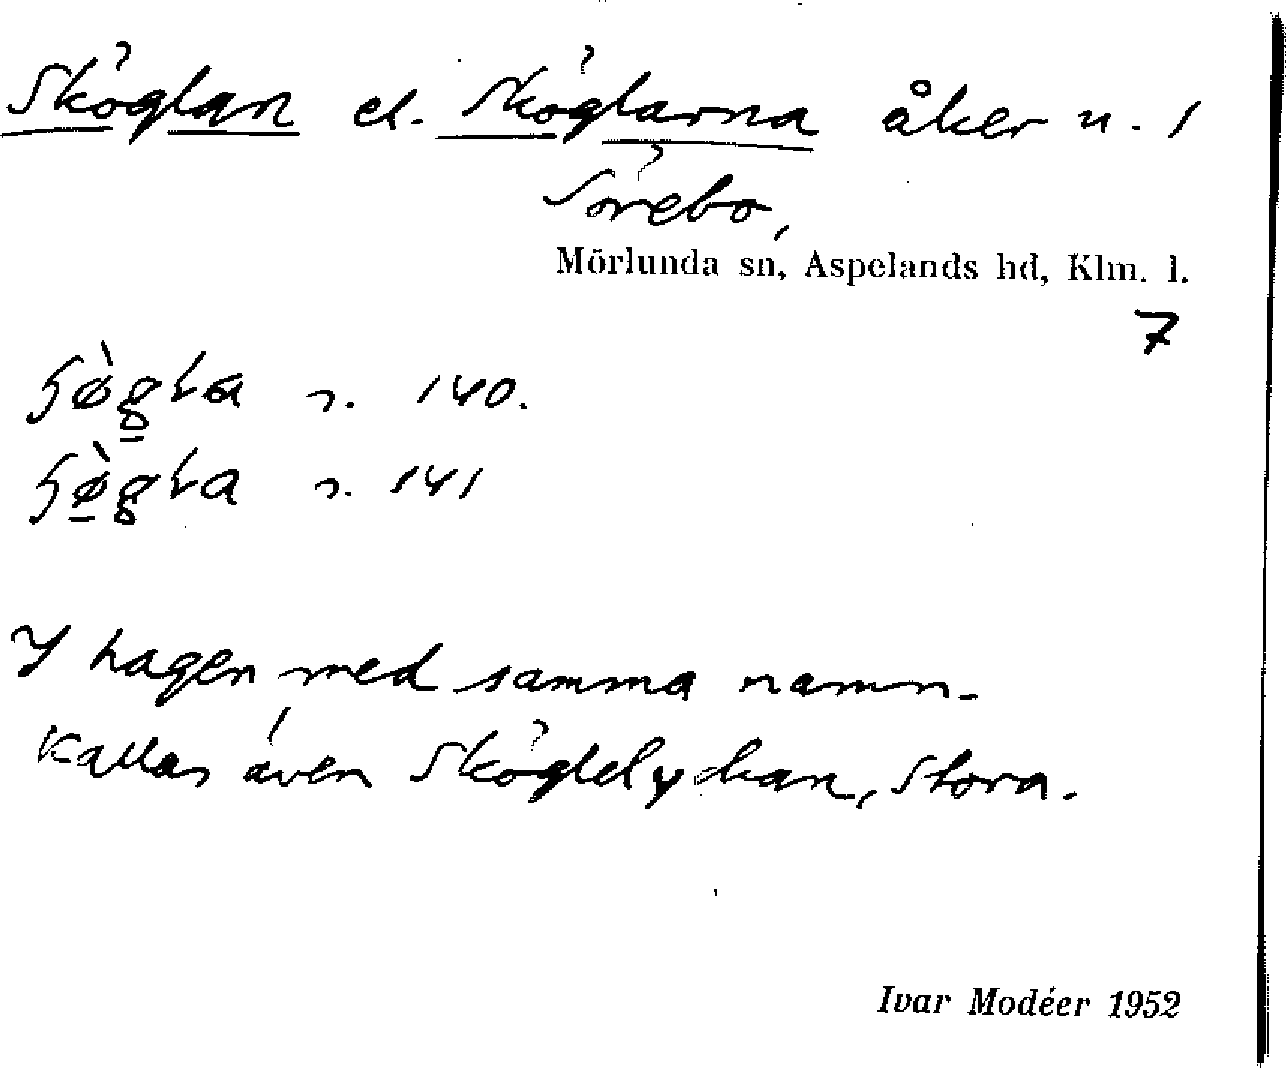 Sköglan el. Sköglarna åker n. 1
Sörebo,
Mörlunda sn, Aspelands hd, Klm. l.
7
n. 140.
n. 141
I hagen med samma namn.
Kallas även Sköglelyckan, Stora.
Ivar Modéer 1952